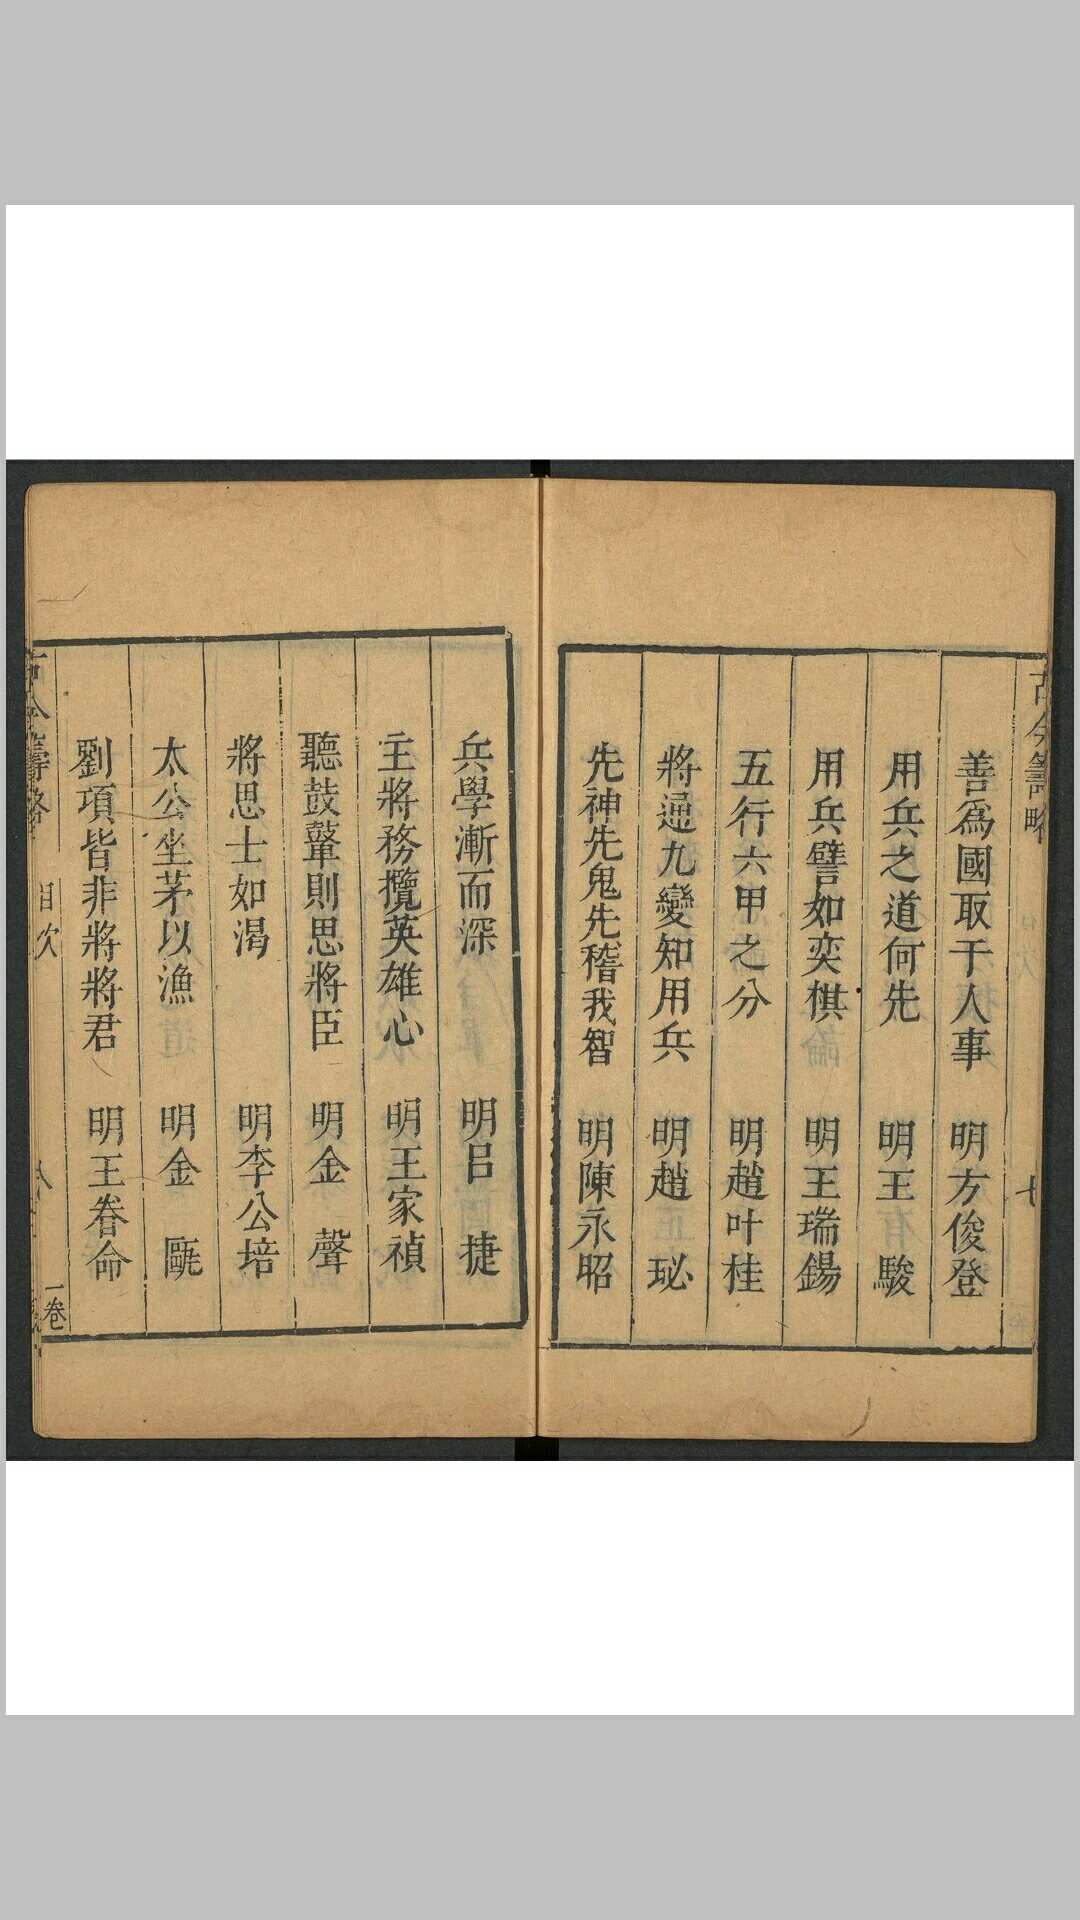 古今籌略
七
善爲國取于人事　明方俊登
用兵之道何先　明王　駿
用兵譬如奕棋　明王瑞鍚
五行六甲之分　明趙叶桂
將通九變知用兵　明趙　珌
先神先鬼先稽我智　明陳永昭
兵學漸而深　明呂　捷
主將務攬英雄心　明王家禎
聽鼓鼙則思將臣　明金　聲
將思士如渴　明李公培
太公坐茅以漁　明金
劉項皆非將將君　明王眷命
古今籌略　目次　八　一卷